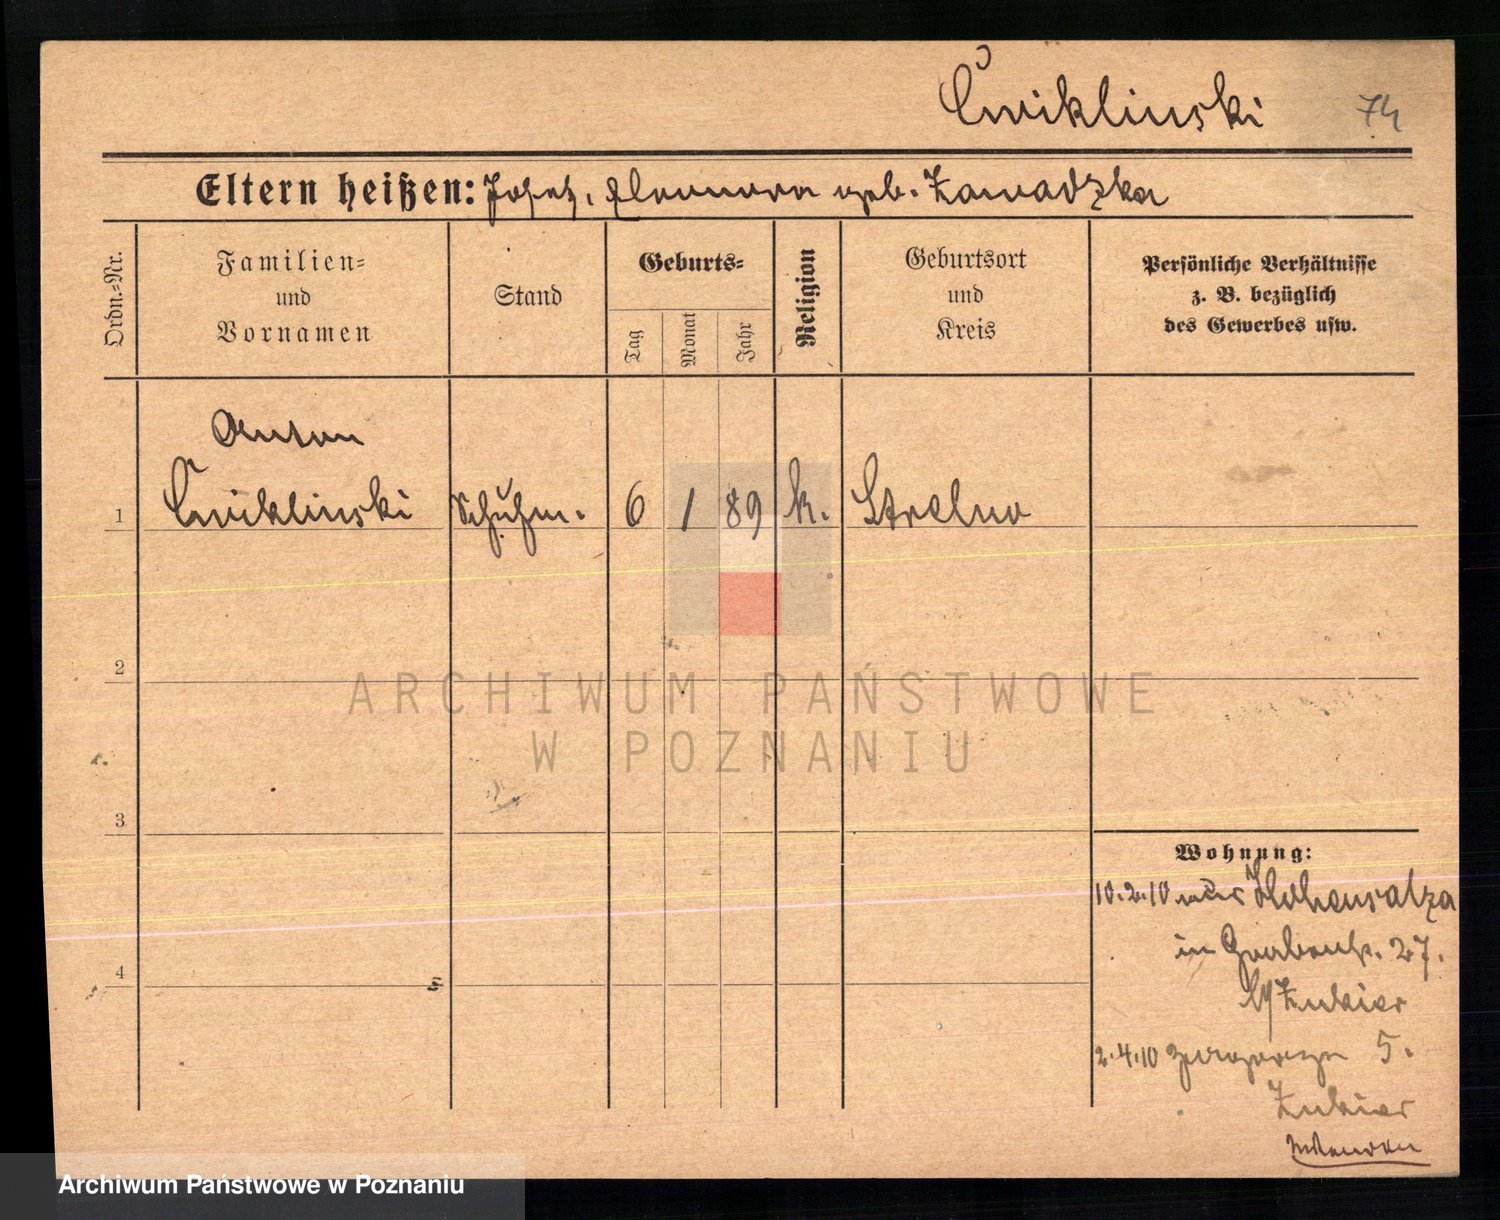 Ćwiklinski 74
Eltern heißen: Josef, Eleonora geb. Zawadzka
Ordn.-Nr.
Familien-
und
Vornamen
Stand
Geburts-
Tag
Monat
Jahr
Religion
Geburtsort
und
Kreis
Persönliche Verhältnisse
z. B. bezüglich
des Gewerbes usw.
Anton
1 Ćwiklinski Schuhm. 6 1 89 k. Strelno
2
3
4
Wohnung:
10.2.10 aus Hohensalza
in Grabenstr. 27.
b/ Zukier
2.4.10 5.
Zukier
ARCHIWUM PAŃSTWOWE
W POZNANIU
Archiwum Państwowe w Poznaniu